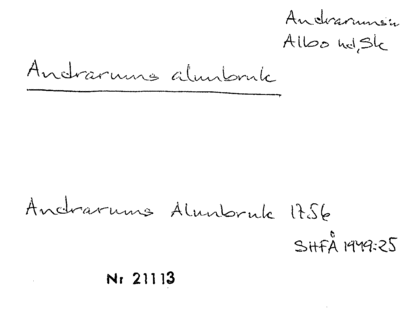 Andrarums sn
Albo hd, Sk
Andrarums alunbruk
Andrarums Alunbruk 1756
SHFÅ 1949:25
Nr 21113